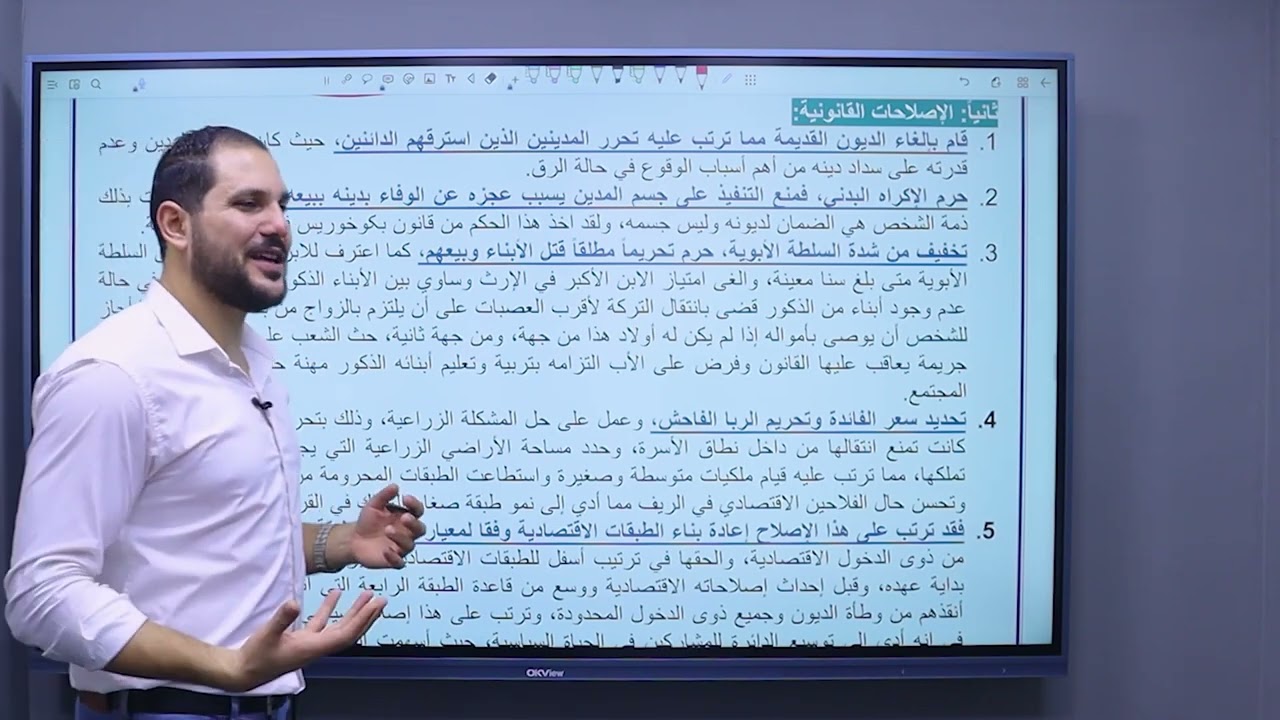 ثانياً: الإصلاحات القانونية:
1. قام بإلغاء الديون القديمة مما ترتب عليه تحرر المدينين الذين استرقهم الدائنين، حيث وعدم
قدرته على سداد دينه من أهم أسباب الوقوع في حالة الرق.
2. حرم الإكراه البدني، فمنع التنفيذ على جسم المدين يسبب عجزه عن الوفاء بدينه بذلك
ذمة الشخص هي الضمان لديونه وليس جسمه، ولقد اخذ هذا الحكم من قانون بكوخوريس
3. تخفيف من شدة السلطة الأبوية، حرم تحريماً مطلقاً قتل الأبناء وبيعهم، كما اعترف السلطة
الأبوية متى بلغ سنا معينة، والغى امتياز الابن الأكبر في الإرث وساوي بين الأبناء حالة
عدم وجود أبناء من الذكور قضى بانتقال التركة لأقرب العصبات على أن يلتزم بالزواج من
للشخص أن يوصى بأمواله إذا لم يكن له أولاد هذا من جهة، ومن جهة ثانية، حث الشعب
جريمة يعاقب عليها القانون وفرض على الأب التزامه بتربية وتعليم أبنائه الذكور مهنة
المجتمع.
4. تحديد سعر الفائدة وتحريم الربا الفاحش، وعمل على حل المشكلة الزراعية، وذلك
كانت تمنع انتقالها من داخل نطاق الأسرة، وحدد مساحة الأراضي الزراعية التي
تملكها، مما ترتب عليه قيام ملكيات متوسطة وصغيرة واستطاعت الطبقات المحرومة
وتحسن حال الفلاحين الاقتصادي في الريف مما أدي إلى نمو طبقة في
5. فقد ترتب على هذا الإصلاح إعادة بناء الطبقات الاقتصادية وفقا
من ذوى الدخول الاقتصادية، والحقها في ترتيب أسفل للطبقات
بداية عهده، وقبل إحداث إصلاحاته الاقتصادية ووسع من قاعدة الطبقة الرابعة
أنقذهم من وطأة الديون وجميع ذوى الدخول المحدودة، وترتب على هذا
في انه أدى إلى توسيع الدائرة للمشاركين في الحياة السياسية، حيث أسهمت
OKView